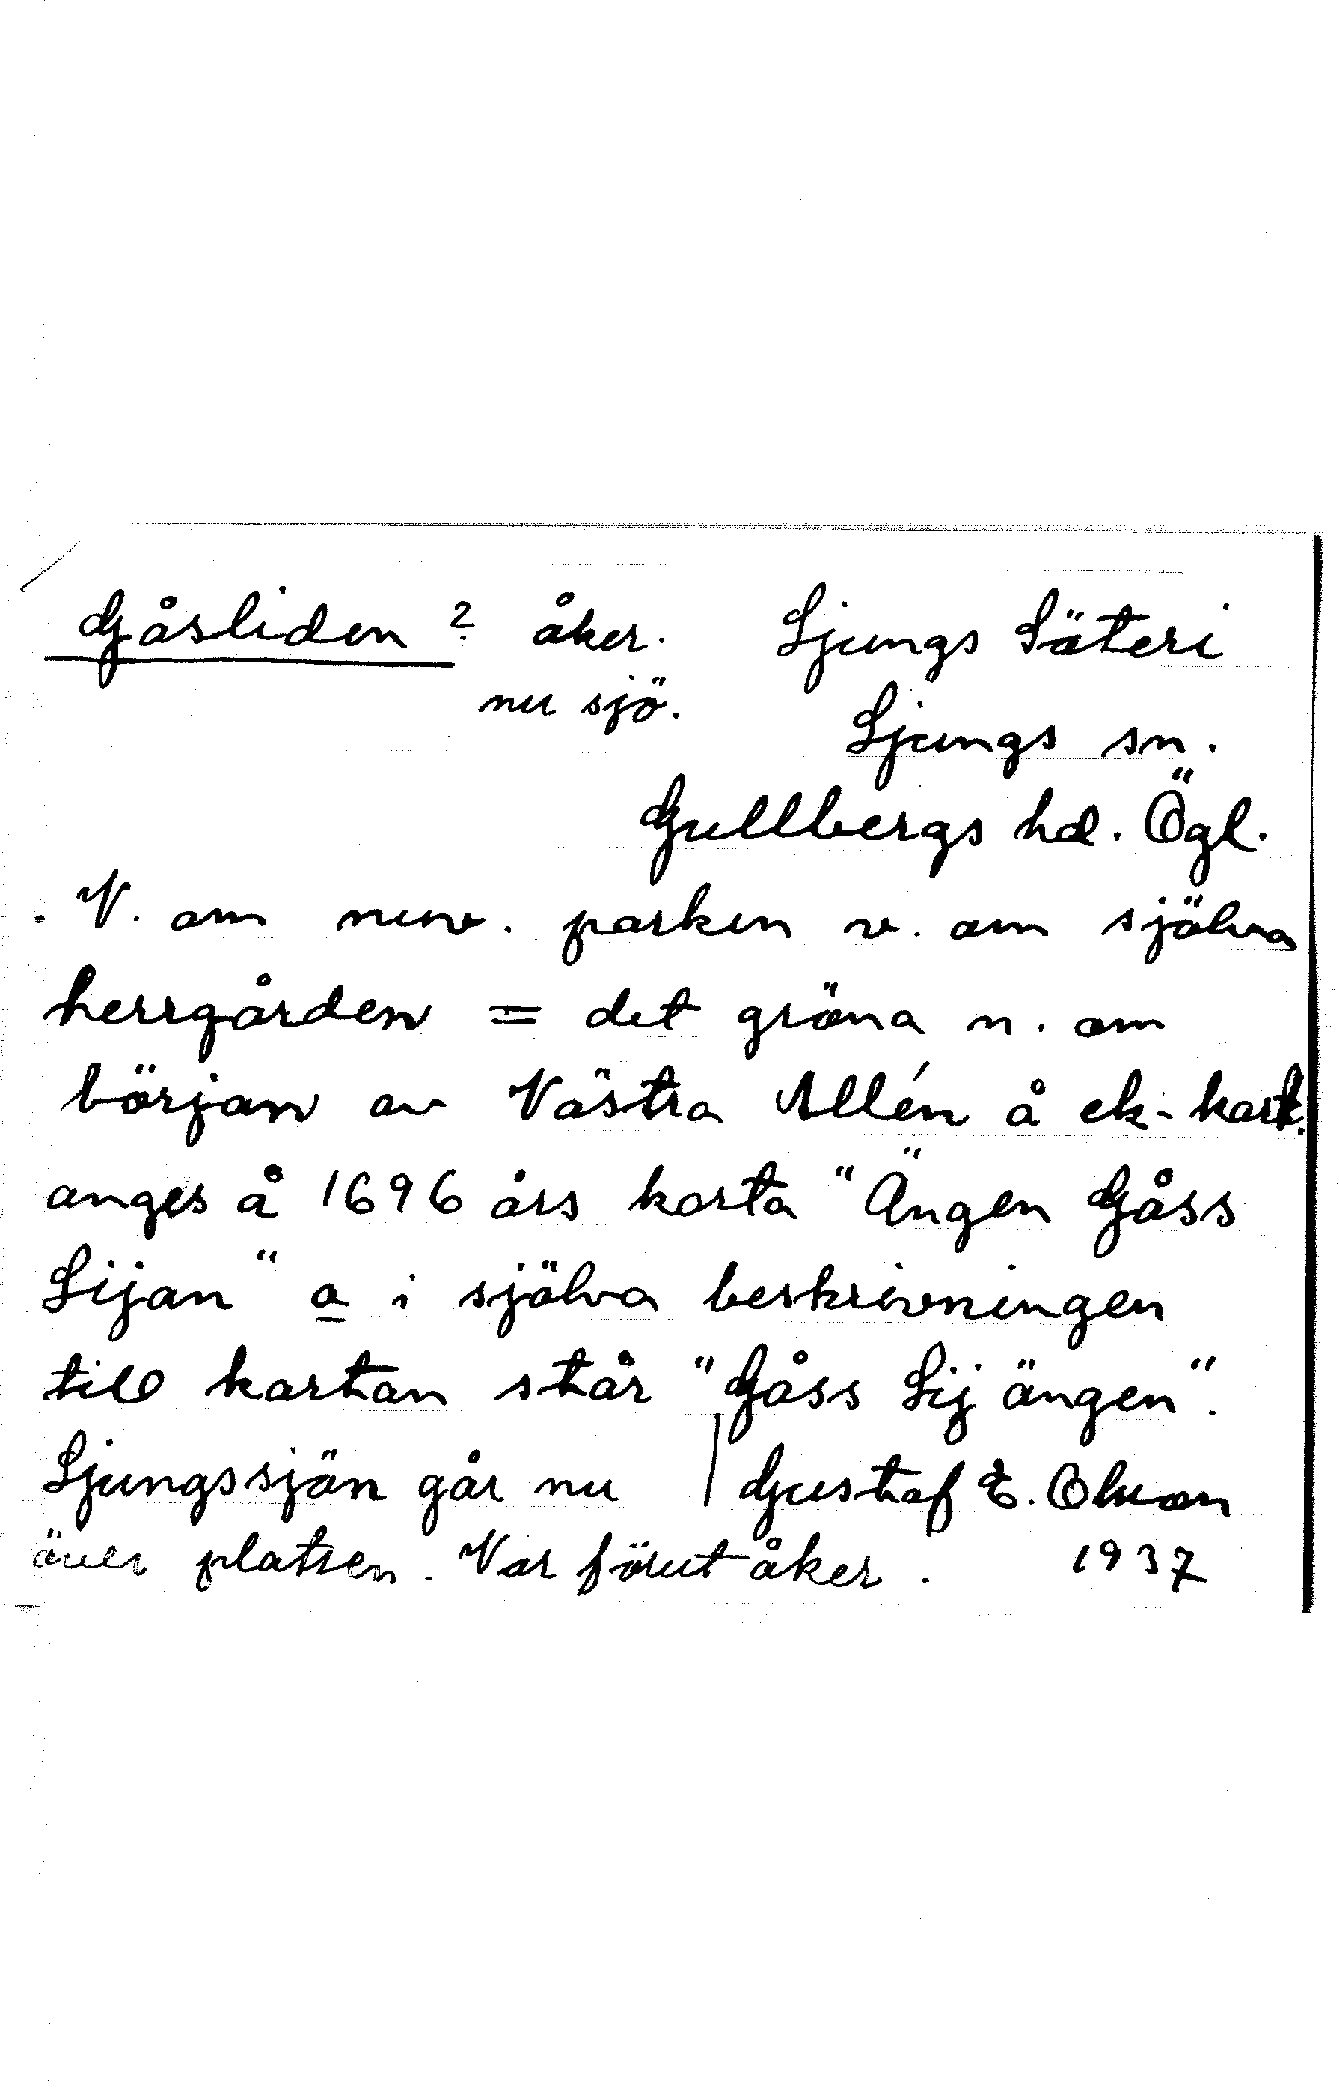 Gåsliden ? åker. Ljungs Säteri
nu sjö. Ljungs sn.
Gullbergs hd. Ögl.
V. om nuv. parken v. om själva
herrgården = det gröna n. om
början av Västra Allén å ek-kart.
anges å 1696 års karta "Ängen Gåss
Lijan" a i själva beskrivningen
till kartan står "Gåss Lij ängen".
Ljungssjön går nu Gustaf E. Olsson
över platsen. Var förut åker. 1937